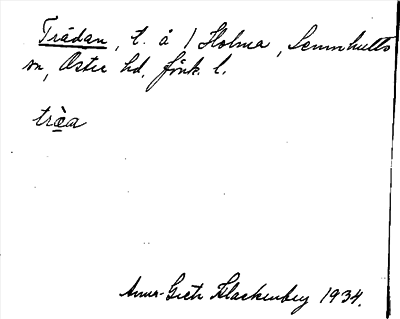 Trädan, t. å 1 Holma, Lemnhults
sn, Öster hd. Jönk. l.
træ̀a
Anna-Greta Klackenberg 1934.